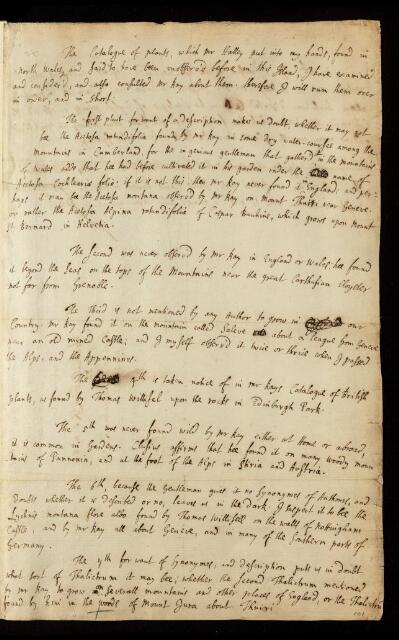 The Catalogue of plants, which Mr Hally put into my hands, found in
north Wales, and said to have been unobserv'd before in this Island, I have examined
and consider'd, and also consulted Mr Ray about them. therefore I will run them over
in order, and in short.
The first plant for want of a description makes us doubt, whether it may not
be the Acetosa rotundifolia found by Mr Ray in some dry water-courses among the
mountains in Cumberland, for the ingenious gentleman that gathered in the mountains
of Wales adds that hee had before cultivated it in his garden under the name of
Acetosa Cochleariae folio. if it is not this then Mr Ray never found it England, and per-
haps it may be the Acetosa montana observed by Mr Ray on Mount Thuiri near Geneve.
or rather the Acetosa Alpina rotundifolia of Caspar Bauhins, which grows upon Mount
St Bernard in Helvetia.
The Second was never observed by Mr Ray in England or Wales, hee found
it beyond the Seas, on the tops of the Mountains near the great Carthusian cloyster
not far from Grenoble.
The Third is not mentioned by any Author to grow in our
Country. Mr Ray found it on the mountain called Saleve about a league from Geneve
near an old ruined Castle; and I myself observed it twice or thrice when I passed
the Alps, and the Appennines.
The 4th is taken notice of in Mr Rays Catalogue of British
plants, as found by Thomas Willisel upon the rocks in Edinburgh Park.
The 5th was never found wild by Mr Ray either at home or abroad,
it is common in Gardens. Clusius affirms that hee found it on many woody moun
tains of Pannonia, and at the foot of the Alps in Stiria and Austria.
The 6th, because the Gentleman gives it no Synonymes of Authors, and
doubts whether it is described or no, leaves us in the Dark. I suspect it to be the
Lychnis montana flore albo found by Thomas Willisell on the walls of Nottingham
Castle, and by Mr Ray all about Geneve, and in many of the Southern parts of
Germany.
The 7th for want of Synonymes, and description puts us in doubt
what sort of Thalictrum it may bee, whether the Second Thalictrum mentioned
by Mr Ray to grow in severall mountains and other places of England, or the Thalictrum
found by him in the woods of Mount Jura about Thuiri.